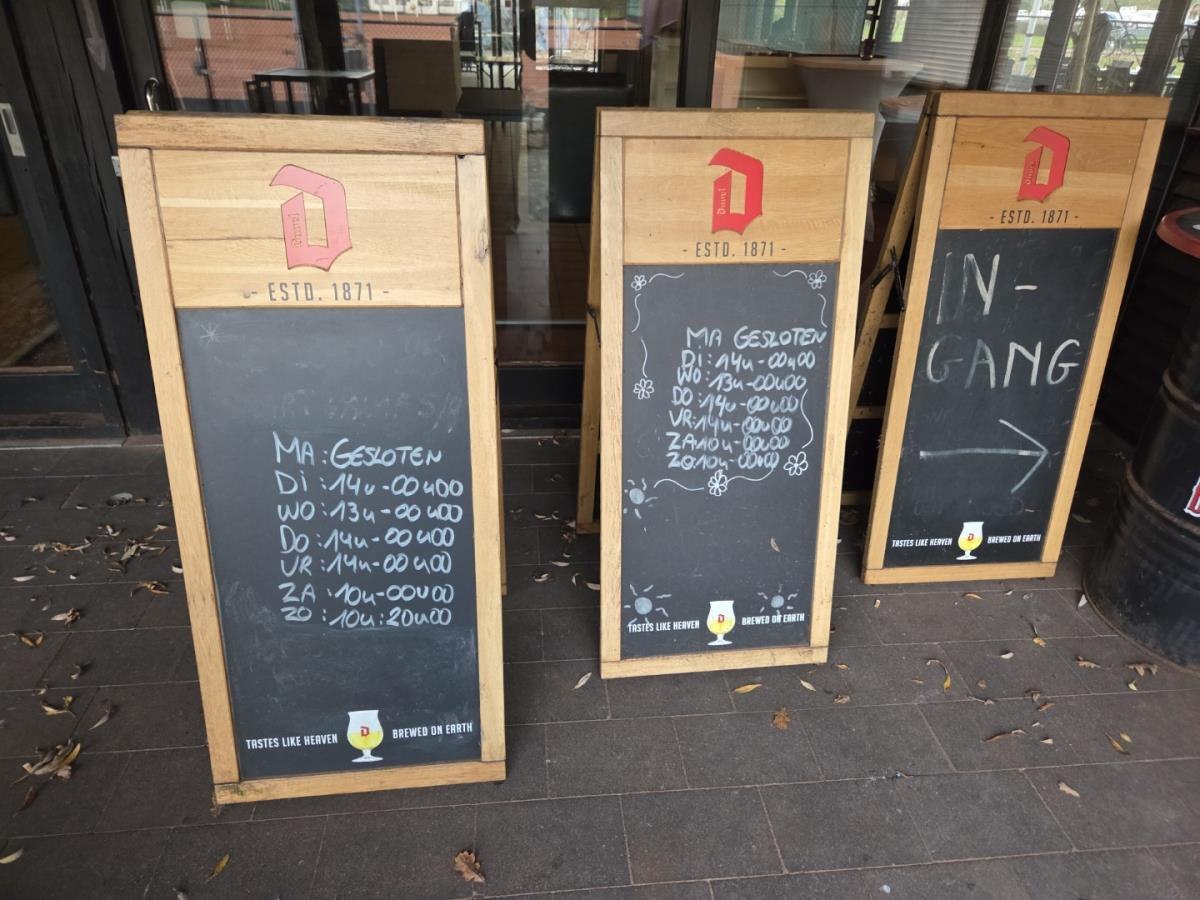 Duvel
- ESTD. 1871 -
MA : GESLOTEN
DI : 14u - 00u00
WO : 13u - 00u00
DO : 14u - 00u00
VR : 14u - 00u00
ZA : 10u - 00u00
ZO : 10u : 20u00
TASTES LIKE HEAVEN BREWED ON EARTH
Duvel
- ESTD. 1871 -
MA GESLOTEN
DI : 14u - 00u00
WO : 13u - 00u00
DO : 14u - 00u00
VR : 14u - 00u00
ZA : 10u - 00u00
ZO : 10u - 00u00
TASTES LIKE HEAVEN BREWED ON EARTH
Duvel
- ESTD. 1871 -
IN -
GANG
TASTES LIKE HEAVEN BREWED ON EARTH